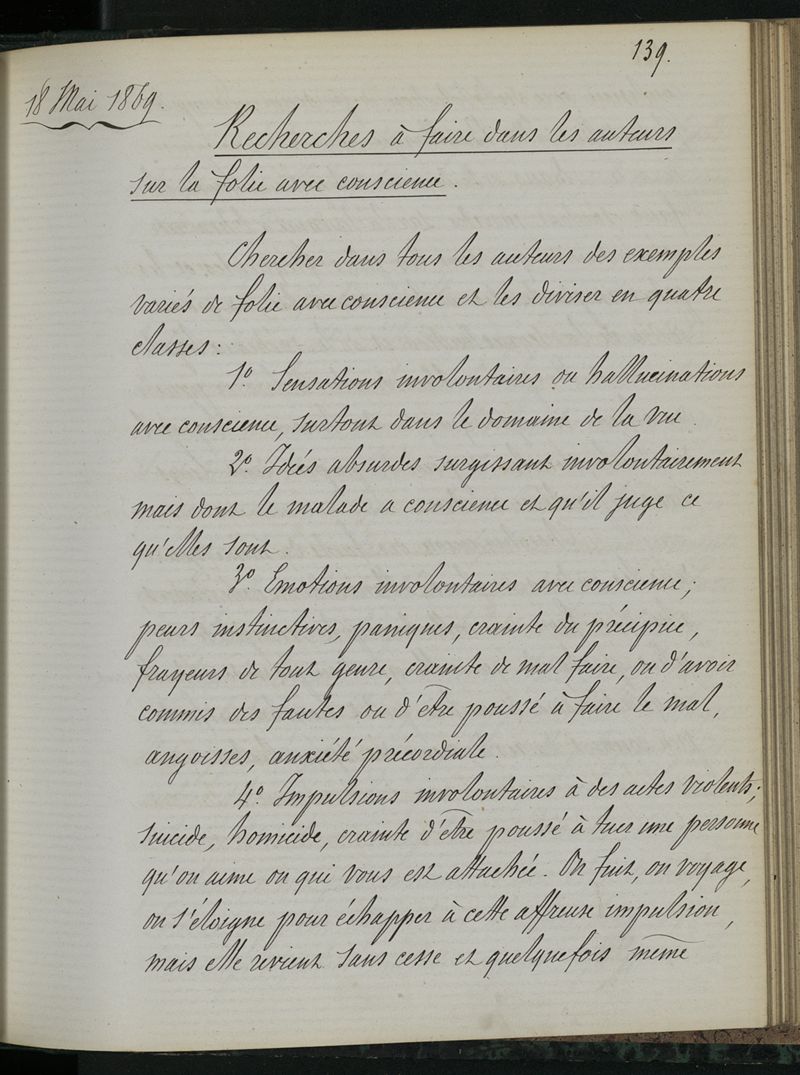 139.
18 Mai 1869.
Recherches à faire dans les auteurs
sur la folie avec conscience.
Chercher dans tous les auteurs des exemples
variés de folie avec conscience et les diviser en quatre
classes :
1º Sensations involontaires ou hallucinations
avec conscience, surtout dans le domaine de la vue.
2º. Idées absurdes surgissant involontairement
mais dont le malade a conscience et qu'il juge ce
qu'elles sont.
3º. Emotions involontaires avec conscience ;
peurs instinctives, paniques, crainte du précipice,
frayeurs de tout genre, crainte de mal faire, ou d'avoir
commis des fautes ou d'être poussé à faire le mal,
angoisses, anxiété précordiale.
4º. Impulsions involontaires à des actes violents ;
suicide, homicide, crainte d'être poussé à tuer une personne
qu'on aime ou qui vous est attachée. On fuit, on voyage,
on s'éloigne pour échapper à cette affreuse impulsion,
mais elle revient sans cesse et quelquefois même